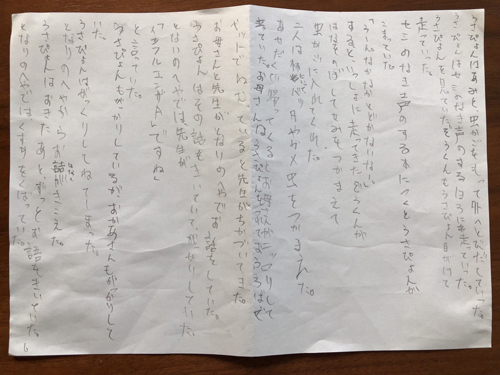 うさぴょんはあみと虫かごをもって外へとびだしていった。
うさぴょんはセミのなき声のするほうに走っていた。
うさぴょんを見ていたぞうくんもうさぴょん目がけて
走っていった。
セミのなき声のする木につくとうさぴょんが
こまっていた。
「うんなかなかとどかないな。」
するといっしょに走ってきたぞうくんが
はなをのばしてセミをつかまえて
虫かごに入れてくれた。
二人は
つかまえた。
出ていた。お母さん
ベットでねていると先生がちかづいてきた。
お母さんと先生がとなりのへやでお話をしていた。
うさぴょんはその話をきいていて
となりのへやでは先生が
「インフルエンザAですね」
と言っていた。
うさぴょんもがっかりしているがおかあさんもがっかりして
いた。
うさぴょんはがっくりしてねてしまった。
となりのへやからお話がきこえた。
うさぴょんはおきたあとずっとお話をきいていた。
となりのへやではくすりをくばっていた。
6